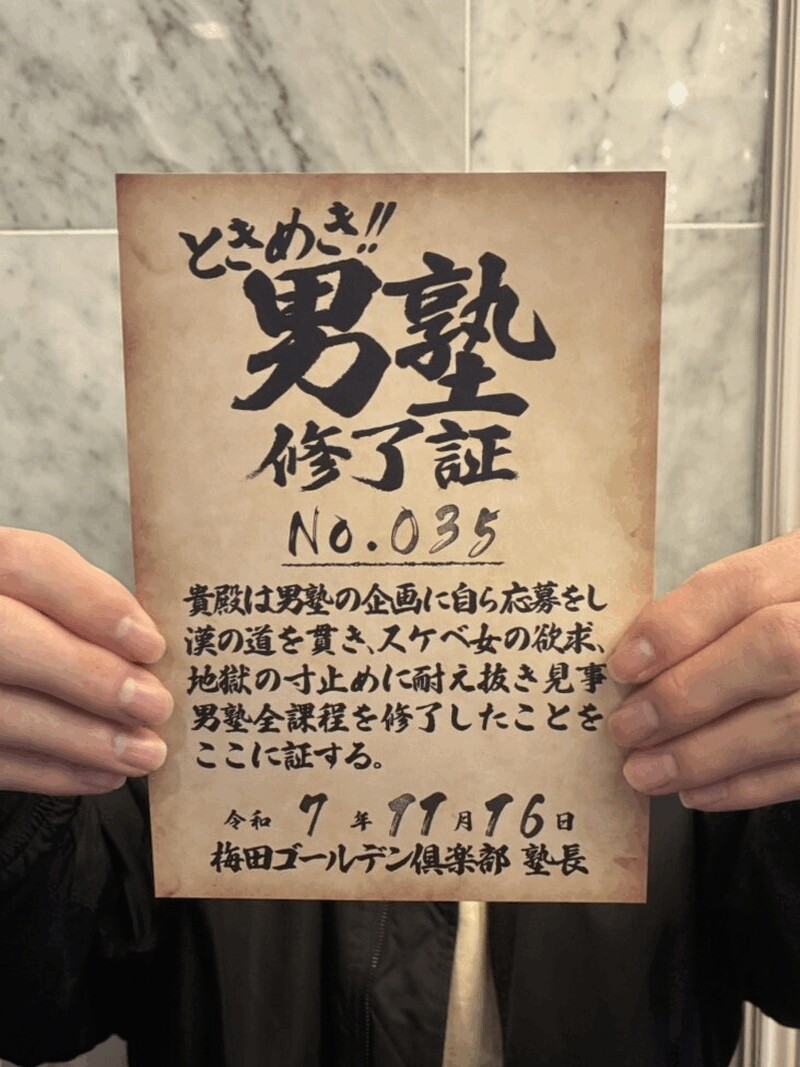 ときめき!!
男塾
修了証
No.035
貴殿は男塾の企画に自ら応募をし
漢の道を貫き、スケベ女の欲求、
地獄の寸止めに耐え抜き見事
男塾全課程を修了したことを
ここに証する。
令和 7 年 11 月 16 日
梅田ゴールデン倶楽部 塾長